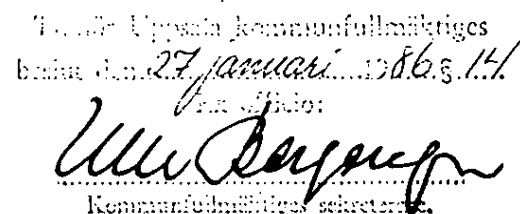 Uppsala kommunfullmäktiges
beslut den 27 januari 1986 § 14
Ex officio:
Kommunfullmäktiges sekreterare